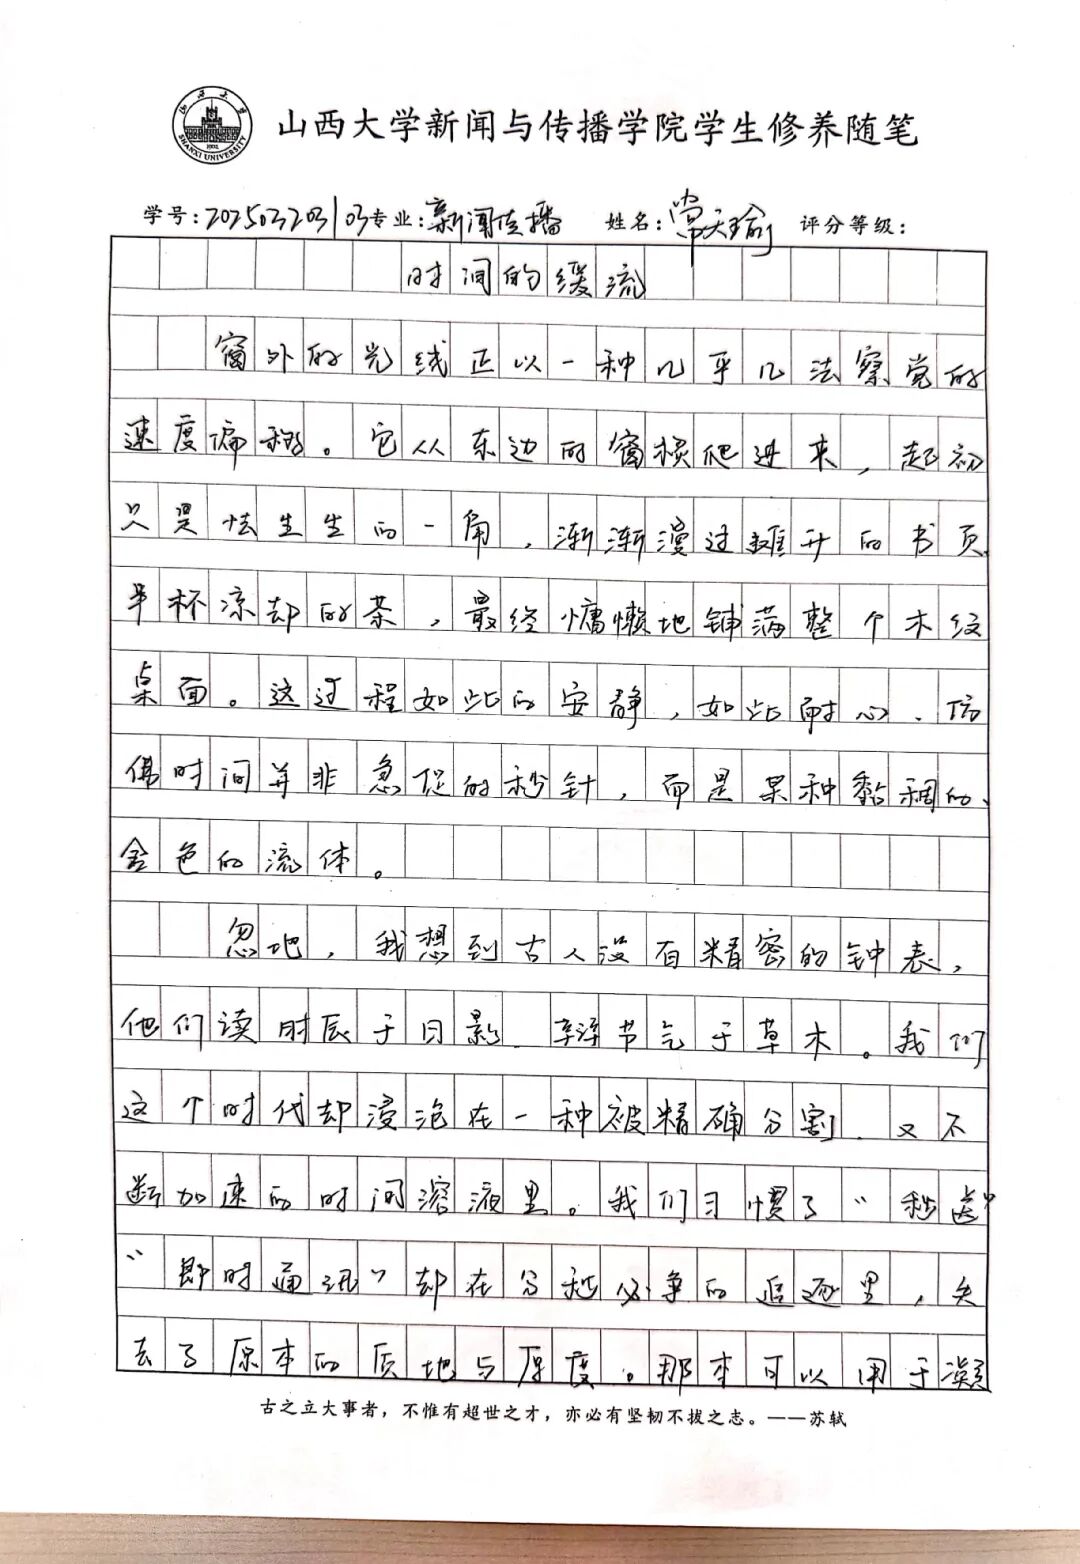 山西大学新闻与传播学院学生修养随笔
学号:202503203103 专业:新闻传播 姓名:常天瑜 评分等级:
时间的缓流
窗外的光线正以一种几乎几法察觉的
速度偏移。它从东边的窗棂爬进来，起初
只是怯生生的一角，渐渐漫过摊开的书页、
半杯凉却的茶，最终慵懒地铺满整个木纹
桌面。这过程如此的安静，如此耐心、仿
佛时间并非急促的秒针，而是某种黏稠的、
金色的流体。
忽地，我想到古人没有精密的钟表，
他们读时辰于日影、辩节气于草木。我们
这个时代却浸泡在一种被精确分割、又不
断加速的时间溶液里。我们习惯了“秒送”
“即时通讯”却在分秒必争的追逐里，失
去了原本的质地与厚度。那本可以用于凝
古之立大事者，不惟有超世之才，亦必有坚韧不拔之志。——苏轼